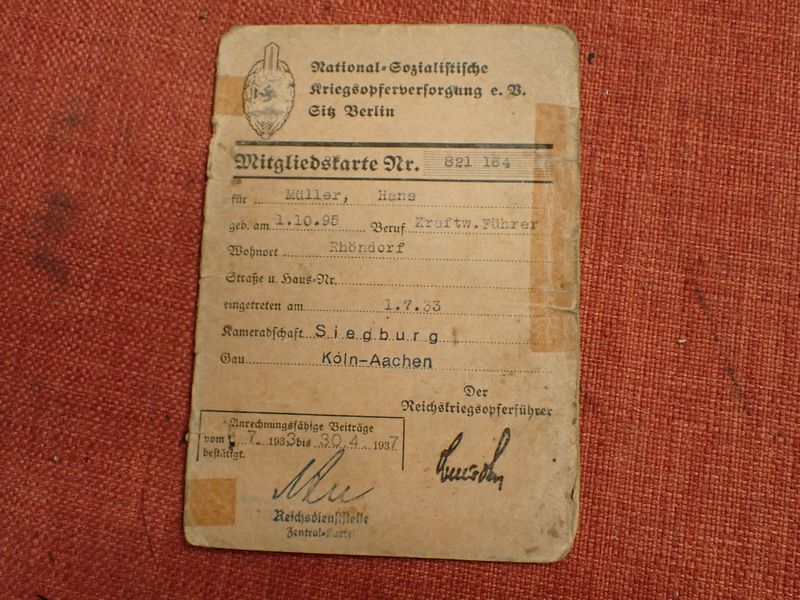 National-Sozialistische
Kriegsopferversorgung e. V.
Sitz Berlin
Mitgliedskarte Nr. 821 164
für Müller, Hans
geb. am 1.10.95 Beruf Kraftw.Führer
Wohnort Rhöndorf
Straße u. Haus-Nr.
eingetreten am 1.7.33
Kameradschaft Siegburg
Gau Köln-Aachen
Der
Reichskriegsopferführer
Anrechnungsfähige Beiträge
vom 7. 1933 bis 30.4. 1937
bestätigt.
Reichsdienststelle
Zentral-Kartei